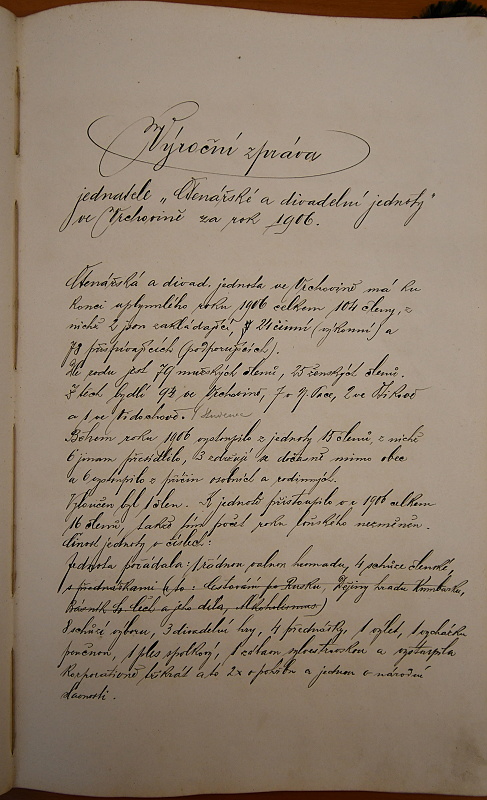 Výroční zpráva
jednatele „Čtenářské a divadelní jednoty"
ve Vrchovině za rok 1906.
Čtenářská a divad. jednota ve Vrchovině má ku
konci uplynulého roku 1906 celkem 104 členy, z
nichž 2 jsou zakládající, 24 činní (výkonní) a
78 přispívajících (podporujících).
Dle rodu jest 79 mužských členů, 25 ženských členů.
Z těch bydlí 94 ve Vrchovině, 7 v N. Pace, 2 ve Žikově
a 1 ve Vidochově.
Během roku 1906 vystoupilo z jednoty 15 členů, z nichž
6 jinam přesídlilo, 3 zdržují se dočasně mimo obec
a 6 vystoupilo z příčin osobních a rodinných.
Vyloučen byl 1 člen. K jednotě přistoupilo v r. 1906 celkem
16 členů, takže tím počet roku loňského nezměněn.
Činnost jednoty v číslech:
Jednota pořádala: 1 řádnou valnou hromadu, 4 schůze členské,
s přednáškami (a to: Cestování po Rusku, Dějiny hradu Kumburku,
Básník Sv. Čech a jeho díla, Alkoholismus)
8 schůzí výboru, 3 divadelní hry, 4 přednášky, 1 výlet, 1 vycházku
1 ples spolkový, 1 zábavu sylvestrovskou a vystoupila
korporativně třikrát a to 2x o pohřbu a jednou o národní
slavnosti.